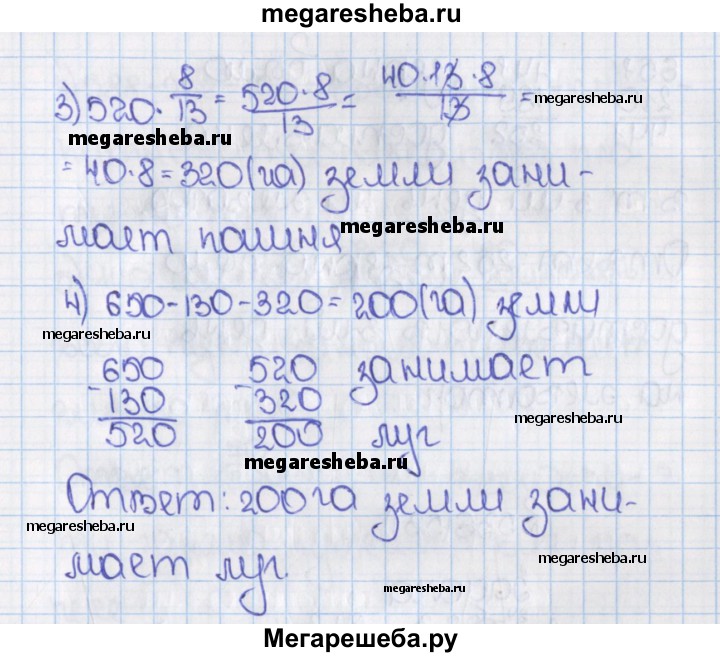 megaresheba.ru
3) 520 · 8/13 = 520·8/13 = 40·13·8/13 =
megaresheba.ru
megaresheba.ru
= 40·8 = 320 (га) земли зани-
мает пашня
megaresheba.ru
4) 650-130-320=200(га) земли
megaresheba.ru
650 520 занимает
- 130 - 320
megaresheba.ru
520 200 луг
megaresheba.ru
Ответ: 200 га земли зани-
megaresheba.ru
мает луг.
megaresheba.ru
megaresheba.ru
Мегарешеба.ру